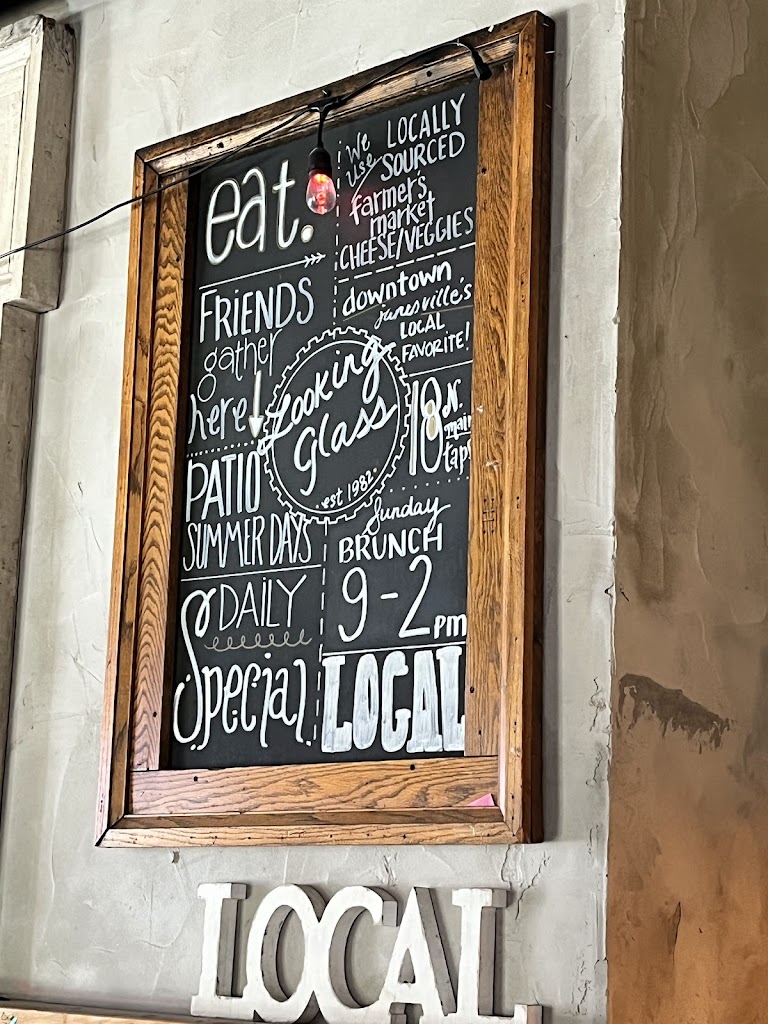 eat.
FRiENDS
gather
here
PATIO
SUMMER DAYS
DAiLY
Special
We use LOCALLY
SOURCED
farmer's
market
CHEESE/VEGGIES
downtown
janesville's
LOCAL
FAVORiTE!
Looking
Glass
est 1982
18 N.
main
taps
Sunday
BRUNCH
9-2pm
LOCAL
LOCAL